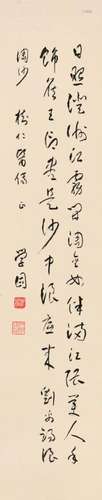 日照澄洲江霧開淘金女伴滿江隈美人首
飾侯王印盡是沙中浪底來 劉禹錫浪
淘沙 仁 正